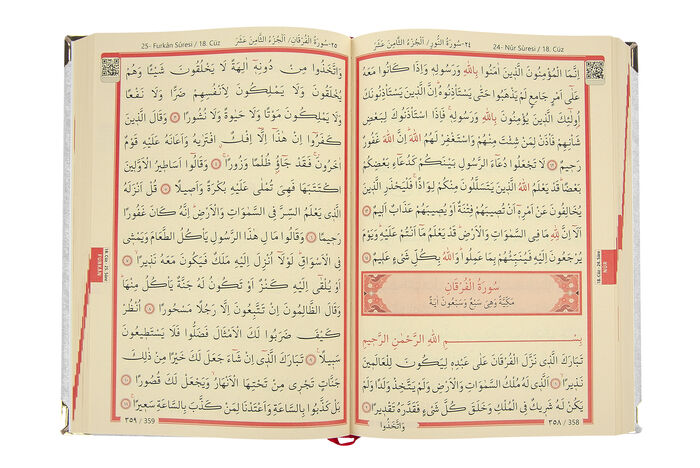 24- Nûr Sûresi / 18. Cüz
٢٤-سُورَةُ النُّورِ/ اَلْجُزْءُ الثَّامِنَ عَشَرَ
اِنَّمَا الْمُؤْمِنُونَ الَّذٖينَ اٰمَنُوا بِاللّٰهِ وَرَسُولِهٖ وَاِذَا كَانُوا مَعَهُ
عَلٰٓى اَمْرٍ جَامِعٍ لَمْ يَذْهَبُوا حَتّٰى يَسْتَأْذِنُوهُ اِنَّ الَّذٖينَ يَسْتَأْذِنُونَكَ
اُو۬لٰٓئِكَ الَّذٖينَ يُؤْمِنُونَ بِاللّٰهِ وَرَسُولِهٖ فَاِذَا اسْتَأْذَنُوكَ لِبَعْضِ
شَأْنِهِمْ فَأْذَنْ لِمَنْ شِئْتَ مِنْهُمْ وَاسْتَغْفِرْ لَهُمُ اللّٰهَ اِنَّ اللّٰهَ غَفُورٌ
رَحٖيمٌ ﴿٦٢﴾ لَا تَجْعَلُوا دُعَٓاءَ الرَّسُولِ بَيْنَكُمْ كَدُعَٓاءِ بَعْضِكُمْ
بَعْضًا قَدْ يَعْلَمُ اللّٰهُ الَّذٖينَ يَتَسَلَّلُونَ مِنْكُمْ لِوَاذًا فَلْيَحْذَرِ الَّذٖينَ
يُخَالِفُونَ عَنْ اَمْرِهٖٓ اَنْ تُصٖيبَهُمْ فِتْنَةٌ اَوْ يُصٖيبَهُمْ عَذَابٌ اَلٖيمٌ ﴿٦٣﴾
اَلَٓا اِنَّ لِلّٰهِ مَا فِي السَّمٰوَاتِ وَالْاَرْضِ قَدْ يَعْلَمُ مَٓا اَنْتُمْ عَلَيْهِ وَيَوْمَ
يُرْجَعُونَ اِلَيْهِ فَيُنَبِّئُهُمْ بِمَا عَمِلُوا وَاللّٰهُ بِكُلِّ شَيْءٍ عَلٖيمٌ ﴿٦٤﴾
سُورَةُ الْفُرْقَانِ
مَكِّيَّةٌ وَهِيَ سَبْعٌ وَسَبْعُونَ اٰيَةً
بِسْمِ اللّٰهِ الرَّحْمٰنِ الرَّحٖيمِ
تَبَارَكَ الَّذٖي نَزَّلَ الْفُرْقَانَ عَلٰى عَبْدِهٖ لِيَكُونَ لِلْعَالَمٖينَ
نَذٖيرًا ﴿١﴾ اَلَّذٖي لَهُ مُلْكُ السَّمٰوَاتِ وَالْاَرْضِ وَلَمْ يَتَّخِذْ وَلَدًا وَلَمْ
يَكُنْ لَهُ شَرٖيكٌ فِي الْمُلْكِ وَخَلَقَ كُلَّ شَيْءٍ فَقَدَّرَهُ تَقْدٖيرًا ﴿٢﴾
وَاتَّخَذُوا
٣٥٨ / 358
18. Cüz - 24. Sûre
NÛR
25- Furkân Sûresi / 18. Cüz
٢٥-سُورَةُ الْفُرْقَانِ/ اَلْجُزْءُ الثَّامِنَ عَشَرَ
وَاتَّخَذُوا مِنْ دُونِهٖٓ اٰلِهَةً لَا يَخْلُقُونَ شَيْـًٔا وَهُمْ
يُخْلَقُونَ وَلَا يَمْلِكُونَ لِاَنْفُسِهِمْ ضَرًّا وَلَا نَفْعًا
وَلَا يَمْلِكُونَ مَوْتًا وَلَا حَيٰوةً وَلَا نُشُورًا ﴿٣﴾ وَقَالَ الَّذٖينَ
كَفَرُٓوا اِنْ هٰذَٓا اِلَّٓا اِفْكٌ افْتَرٰيهُ وَاَعَانَهُ عَلَيْهِ قَوْمٌ
اٰخَرُونَ فَقَدْ جَٓاؤُ ظُلْمًا وَزُورًا ﴿٤﴾ وَقَالُٓوا اَسَاطٖيرُ الْاَوَّلٖينَ
اكْتَتَبَهَا فَهِيَ تُمْلٰى عَلَيْهِ بُكْرَةً وَاَصٖيلًا ﴿٥﴾ قُلْ اَنْزَلَهُ
الَّذٖي يَعْلَمُ السِّرَّ فِي السَّمٰوَاتِ وَالْاَرْضِ اِنَّهُ كَانَ غَفُورًا
رَحٖيمًا ﴿٦﴾ وَقَالُوا مَالِ هٰذَا الرَّسُولِ يَأْكُلُ الطَّعَامَ وَيَمْشٖي
فِي الْاَسْوَاقِ لَوْلَٓا اُنْزِلَ اِلَيْهِ مَلَكٌ فَيَكُونَ مَعَهُ نَذٖيرًا ﴿٧﴾
اَوْ يُلْقٰٓى اِلَيْهِ كَنْزٌ اَوْ تَكُونُ لَهُ جَنَّةٌ يَأْكُلُ مِنْهَا
وَقَالَ الظَّالِمُونَ اِنْ تَتَّبِعُونَ اِلَّا رَجُلًا مَسْحُورًا ﴿٨﴾ اُنْظُرْ
كَيْفَ ضَرَبُوا لَكَ الْاَمْثَالَ فَضَلُّوا فَلَا يَسْتَطٖيعُونَ
سَبٖيلًا ﴿٩﴾ تَبَارَكَ الَّذٖٓي اِنْ شَٓاءَ جَعَلَ لَكَ خَيْرًا مِنْ ذٰلِكَ
جَنَّاتٍ تَجْرٖي مِنْ تَحْتِهَا الْاَنْهَارُ وَيَجْعَلْ لَكَ قُصُورًا ﴿١٠﴾
بَلْ كَذَّبُوا بِالسَّاعَةِ وَاَعْتَدْنَا لِمَنْ كَذَّبَ بِالسَّاعَةِ سَعٖيرًا ﴿١١﴾
٣٥٩ / 359
18. Cüz - 25. Sûre
FURKÂN